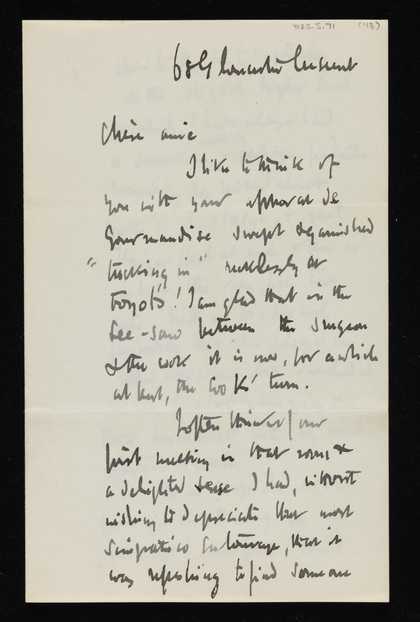 68 Gloucester Crescent
Chère amie
I like to think of
you with your apparat de
Gourmandise swept & garnished
"tucking in" recklessly at
Foyot's! I am glad that in the
see-saw between the surgeon
& the cook it is now, for a while
at least, the cook's turn.
I often think of our
first meeting in that room, &
a delighted sense I had, without
wishing to depreciate that most
simpatico entourage, that it
was refreshing to find someone